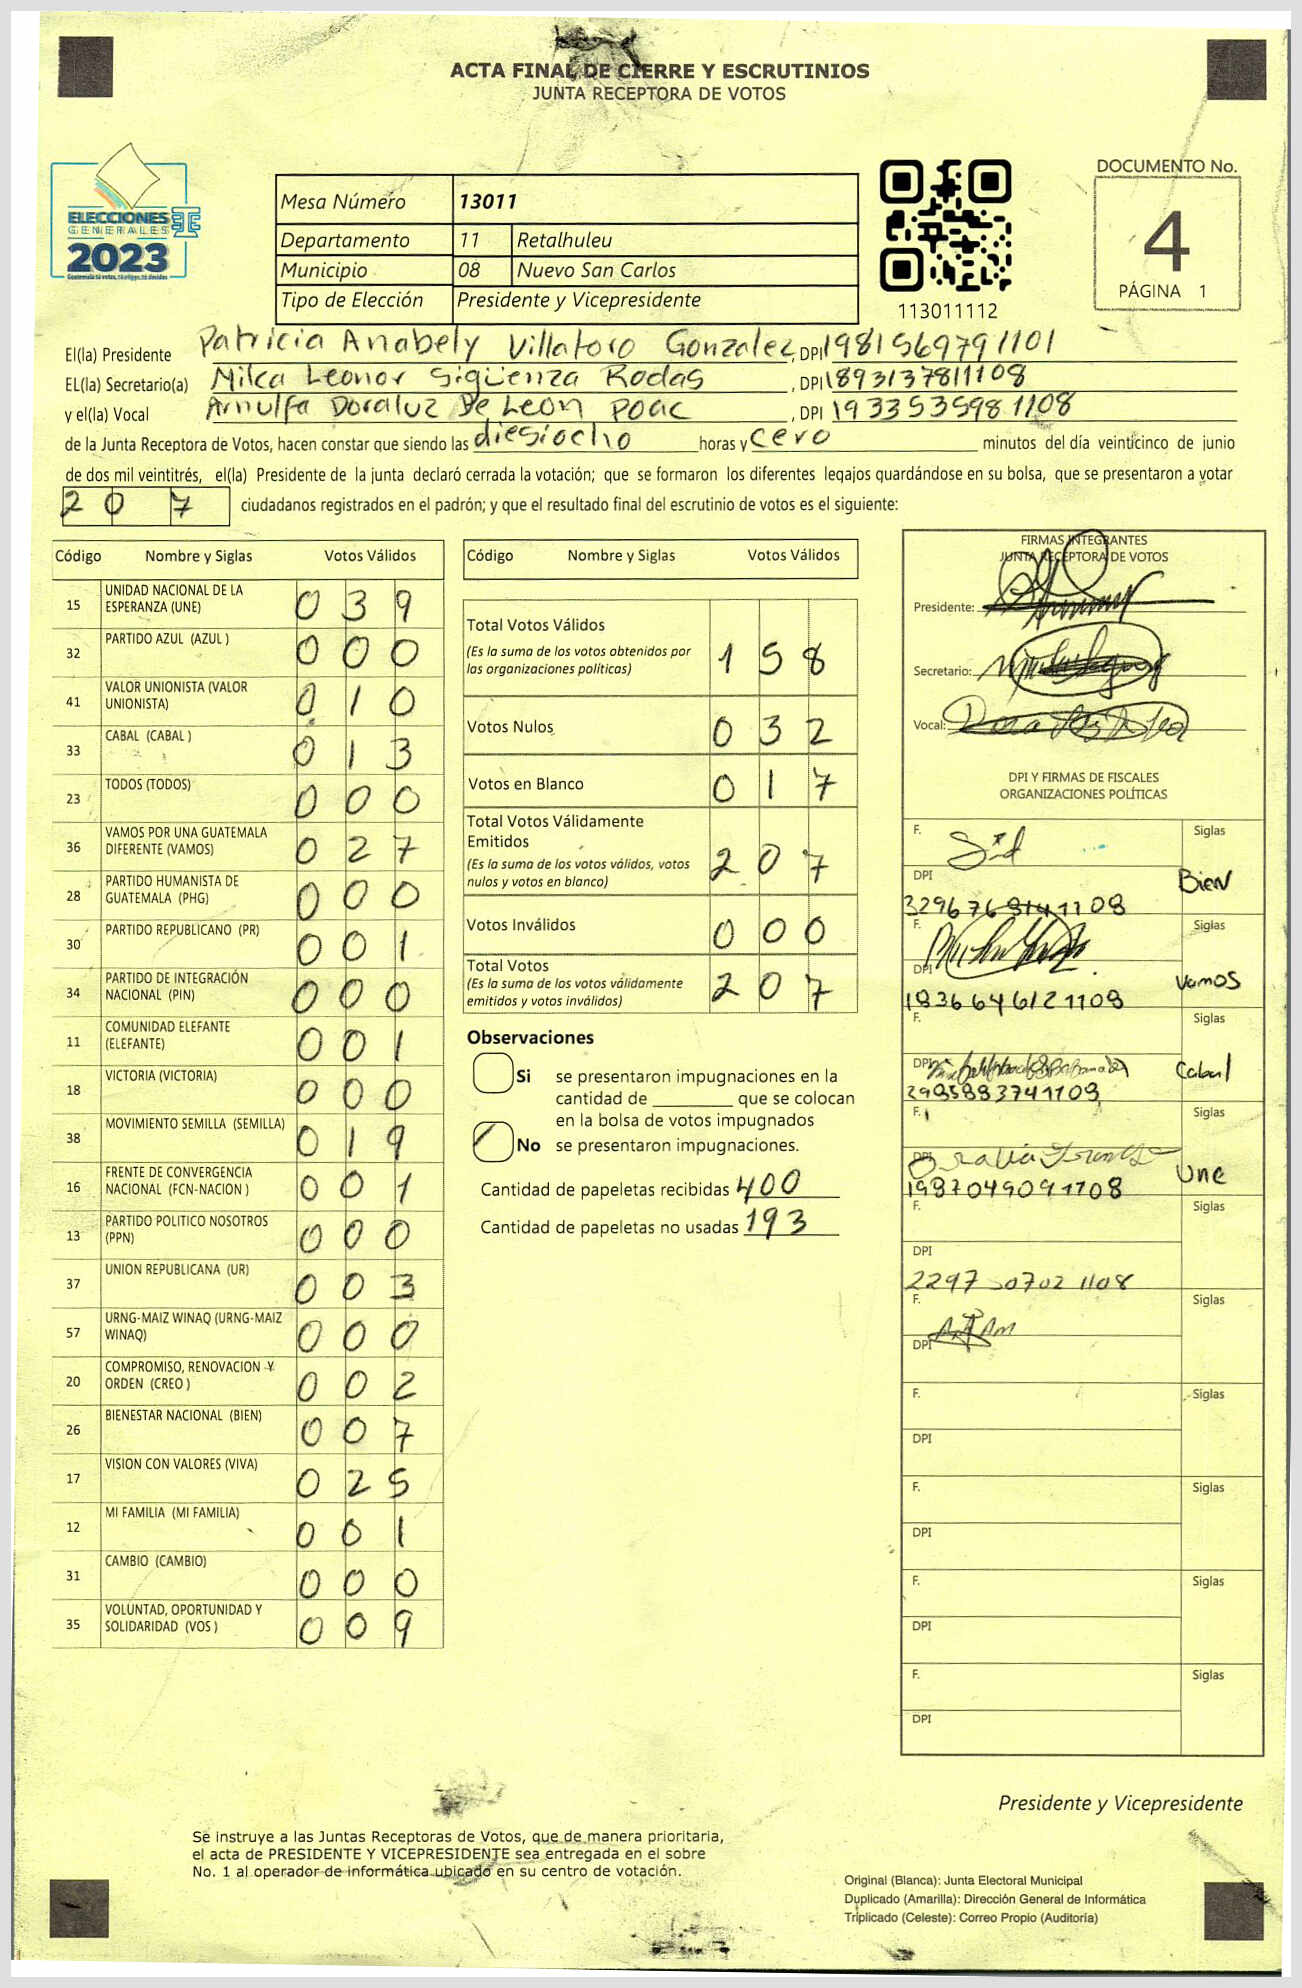 ACTA FINAL DE CIERRE Y ESCRUTINIOS
JUNTA RECEPTORA DE VOTOS
ELECCIONES
GENERALES
2023
Mesa Número 13011
Departamento 11 Retalhuleu
Municipio 08 Nuevo San Carlos
Tipo de Elección Presidente y Vicepresidente
113011112
DOCUMENTO No.
4
PÁGINA 1
El(la) Presidente Patricia Anabely Villatoro Gonzalez, DPI 1981569791101
EL(la) Secretario(a) Milca Leonor Sigüenza Rodas, DPI 1893137811108
y el(la) Vocal Arnulfa Doraluz De Leon Poac, DPI 1933535981108
de la Junta Receptora de Votos, hacen constar que siendo las diesiocho horas y cero minutos del día veinticinco de junio
de dos mil veintitrés, el(la) Presidente de la junta declaró cerrada la votación; que se formaron los diferentes legajos guardándose en su bolsa, que se presentaron a votar
207 ciudadanos registrados en el padrón; y que el resultado final del escrutinio de votos es el siguiente:
Código Nombre y Siglas Votos Válidos
15 UNIDAD NACIONAL DE LA ESPERANZA (UNE) 0 3 9
32 PARTIDO AZUL (AZUL ) 0 0 0
41 VALOR UNIONISTA (VALOR UNIONISTA) 0 1 0
33 CABAL (CABAL ) 0 1 3
23 TODOS (TODOS) 0 0 0
36 VAMOS POR UNA GUATEMALA DIFERENTE (VAMOS) 0 2 7
28 PARTIDO HUMANISTA DE GUATEMALA (PHG) 0 0 0
30 PARTIDO REPUBLICANO (PR) 0 0 1
34 PARTIDO DE INTEGRACIÓN NACIONAL (PIN) 0 0 0
11 COMUNIDAD ELEFANTE (ELEFANTE) 0 0 1
18 VICTORIA (VICTORIA) 0 0 0
38 MOVIMIENTO SEMILLA (SEMILLA) 0 1 9
16 FRENTE DE CONVERGENCIA NACIONAL (FCN-NACION ) 0 0 1
13 PARTIDO POLITICO NOSOTROS (PPN) 0 0 0
37 UNION REPUBLICANA (UR) 0 0 3
57 URNG-MAIZ WINAQ (URNG-MAIZ WINAQ) 0 0 0
20 COMPROMISO, RENOVACION Y ORDEN (CREO ) 0 0 2
26 BIENESTAR NACIONAL (BIEN) 0 0 7
17 VISION CON VALORES (VIVA) 0 2 5
12 MI FAMILIA (MI FAMILIA) 0 0 1
31 CAMBIO (CAMBIO) 0 0 0
35 VOLUNTAD, OPORTUNIDAD Y SOLIDARIDAD (VOS ) 0 0 9
Código Nombre y Siglas Votos Válidos
Total Votos Válidos 1 5 8
(Es la suma de los votos obtenidos por
las organizaciones políticas)
Votos Nulos 0 3 2
Votos en Blanco 0 1 7
Total Votos Válidamente
Emitidos 2 0 7
(Es la suma de los votos válidos, votos
nulos y votos en blanco)
Votos Inválidos 0 0 0
Total Votos 2 0 7
(Es la suma de los votos válidamente
emitidos y votos inválidos)
Observaciones
Si se presentaron impugnaciones en la
cantidad de ________ que se colocan
en la bolsa de votos impugnados
No se presentaron impugnaciones.
Cantidad de papeletas recibidas 400
Cantidad de papeletas no usadas 193
FIRMAS INTEGRANTES
JUNTA RECEPTORA DE VOTOS
Presidente:
Secretario:
Vocal:
DPI Y FIRMAS DE FISCALES
ORGANIZACIONES POLÍTICAS
F. Siglas
DPI Bien
3296768141108
F. Siglas
DPI Vamos
1836646121108
F. Siglas
DPI Cabal
2985883741109
F. Siglas
DPI Une
1987049091108
F. Siglas
DPI
F. Siglas
DPI
F. Siglas
DPI
F. Siglas
DPI
F. Siglas
DPI
F. Siglas
DPI
Presidente y Vicepresidente
Se instruye a las Juntas Receptoras de Votos, que de manera prioritaria,
el acta de PRESIDENTE Y VICEPRESIDENTE sea entregada en el sobre
No. 1 al operador de informática ubicado en su centro de votación.
Original (Blanca): Junta Electoral Municipal
Duplicado (Amarilla): Dirección General de Informática
Triplicado (Celeste): Correo Propio (Auditoría)